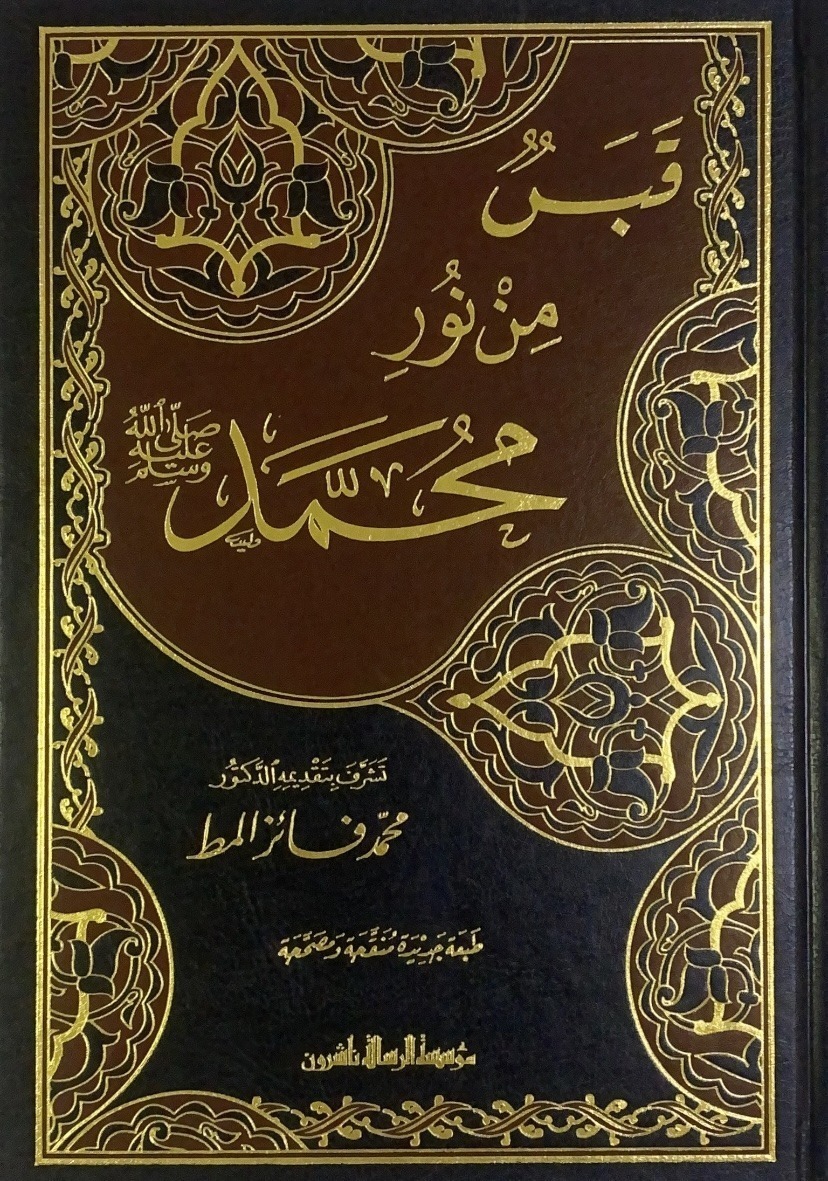 قَبَسٌ
مِنْ نُورِ
مُحَمَّد
صَلَّى اللَّهُ
عَلَيْهِ
وَسَلَّمَ
تَشَرَّفَ بِتَقْدِيمِهِ الدَّكْتُورُ
محمّد فائز المط
طَبعَة جَدِيْدَة مُنَقَّحَة وَمُصَحَّحَة
مؤسسة الرسالة ناشرون